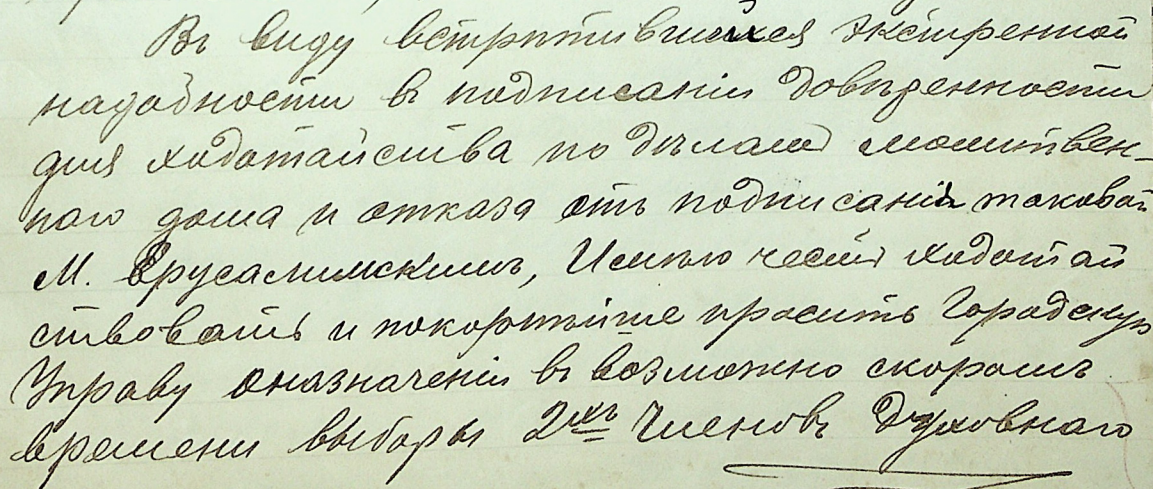 Въ виду встрѣтившейся экстренной
надобности въ подписаніи довѣренности
для ходатайства по дѣламъ молитвен-
наго дома и отказа отъ подписанія таковой
М. Ерусалимскимъ, Имѣю честь ходатай
ствовать и покорнѣйше просить Городскую
Управу о назначеніи въ возможно скоромъ
времени выборы 2хъ Членовъ Духовнаго